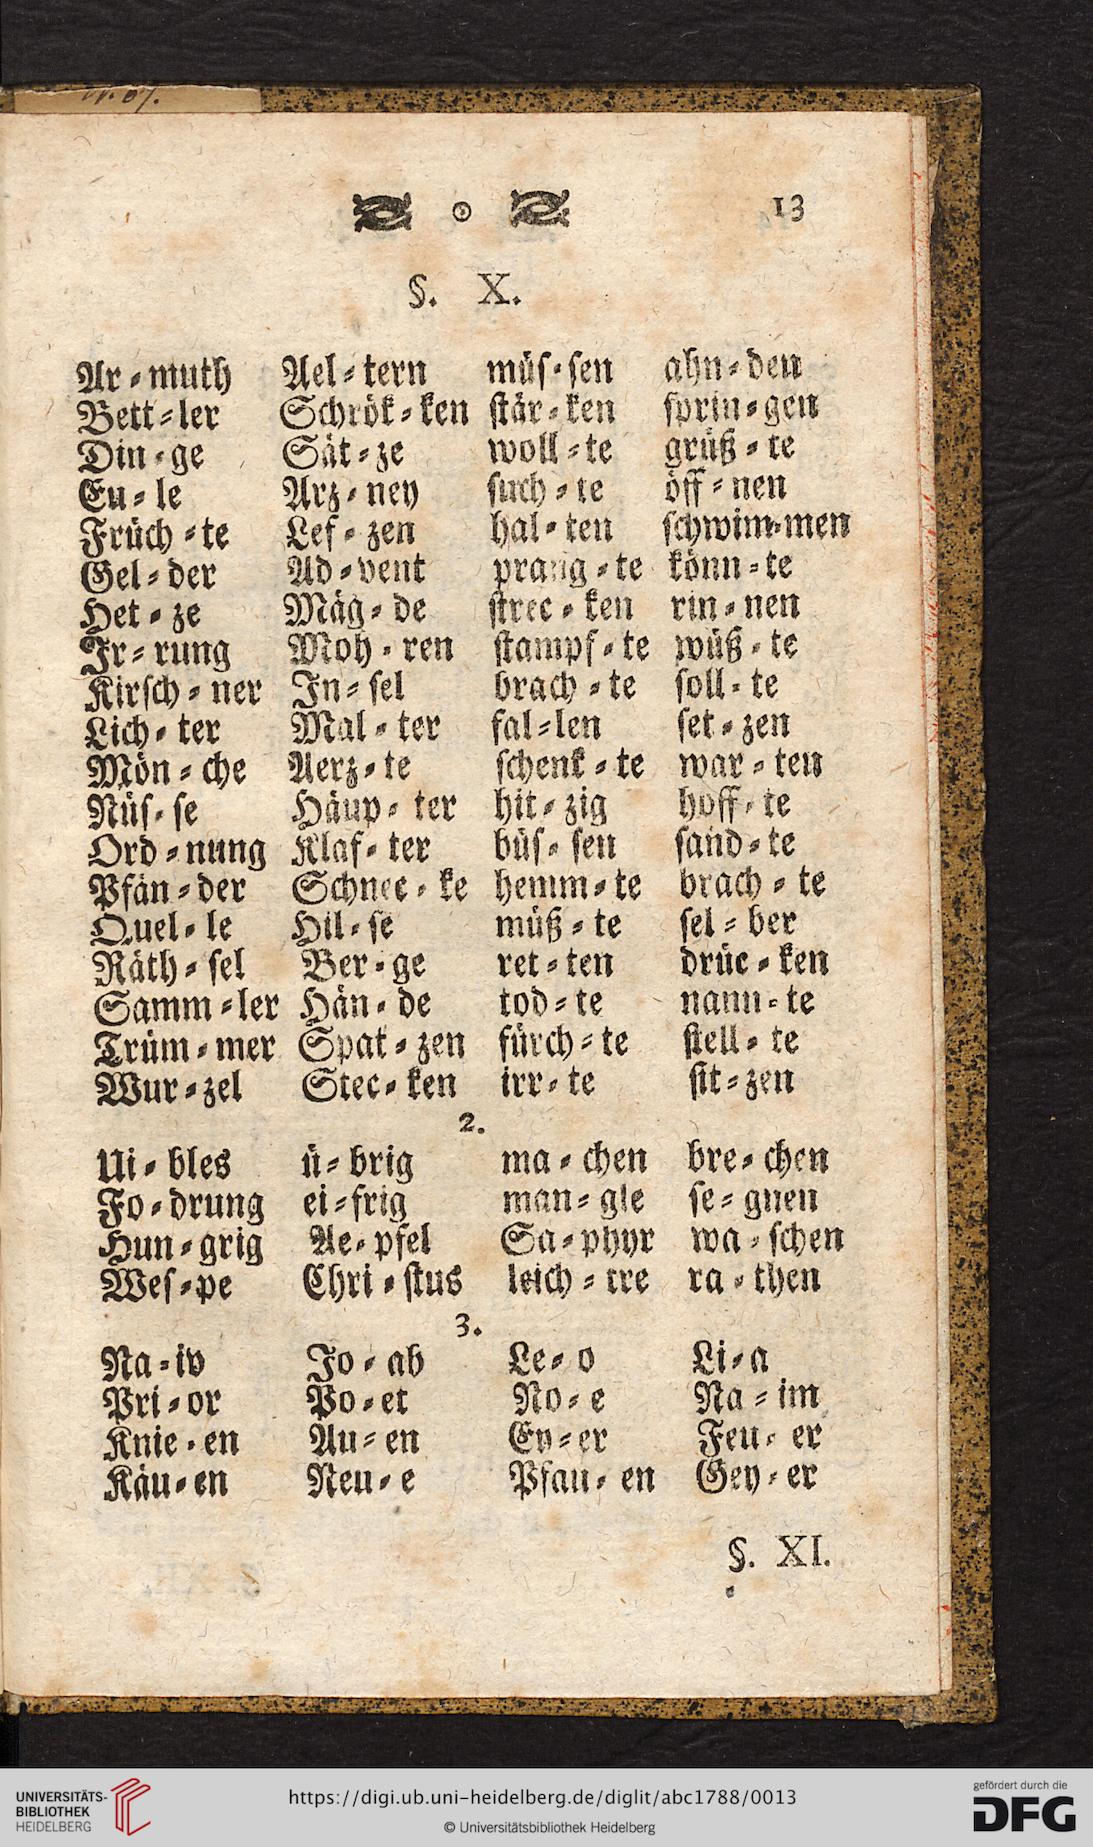 13
§. X.
Ar-muth Ael-tern müs-sen ahn-den
Bett-ler Schrök-ken stär-ken sprin-gen
Din-ge Sät-ze woll-te grüß-te
Eu-le Arz-ney such-te öff-nen
Früch-te Lef-zen hal-ten schwim-men
Gel-der Ad-vent prang-te könn-te
Het-ze Mäg-de strec-ken rin-nen
Ir-rung Moh-ren stampf-te wüß-te
Kirsch-ner In-sel brach-te soll-te
Lich-ter Mal-ter fal-len set-zen
Mön-che Aerz-te schenk-te war-ten
Nüs-se Häup-ter hit-zig hoff-te
Ord-nung Klaf-ter büs-sen sand-te
Pfän-der Schnec-ke hemm-te brach-te
Quel-le Hil-se müß-te sel-ber
Räth-sel Ber-ge ret-ten drüc-ken
Samm-ler Hän-de tod-te nann-te
Trüm-mer Spat-zen fürch-te stell-te
Wur-zel Stec-ken irr-te sit-zen
2.
Ui-bles ü-brig ma-chen bre-chen
Fo-drung ei-frig man-gle se-gnen
Hun-grig Ae-pfel Sa-phyr wa-schen
Wes-pe Chri-stus leich-tre ra-then
3.
Na-iv Jo-ab Le-o Li-a
Pri-or Po-et No-e Na-im
Knie-en Au-en Ey-er Feu-er
Käu-en Neu-e Pfau-en Gey-er
§. XI.
UNIVERSITÄTS-
BIBLIOTHEK
HEIDELBERG
https://digi.ub.uni-heidelberg.de/diglit/abc1788/0013
© Universitätsbibliothek Heidelberg
gefördert durch die
DFG